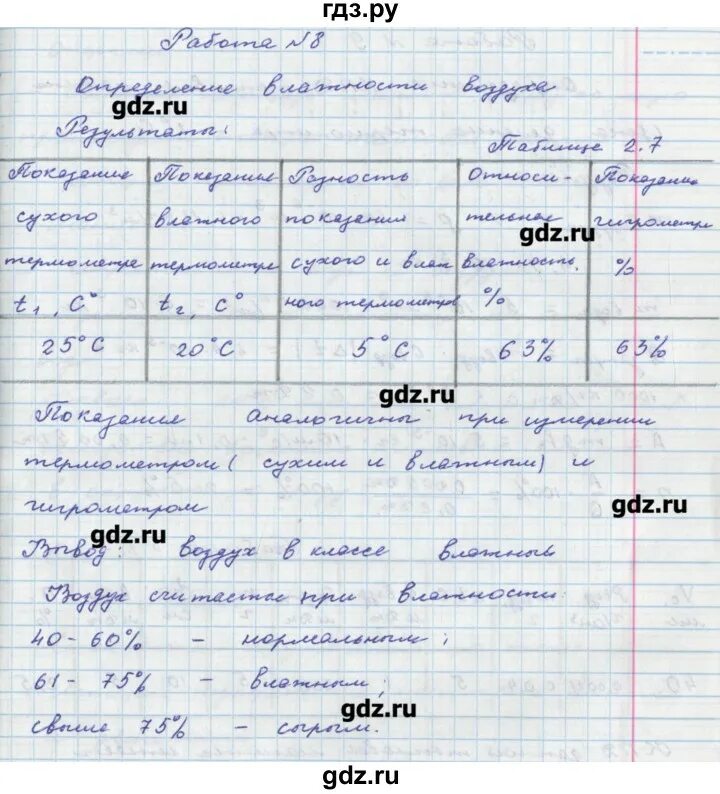 гдз.ру
Работа №8
Определение влажности воздуха
gdz.ru
Результаты:
Таблица 2.7
Показание сухого термометра t₁, C°
Показание влажного термометра t₂, C°
Разность показания сухого и влаж ного термометров
Относи- тельная влажность %
Показание гигрометра %
gdz.ru
25°C
20°C
5°C
63%
63%
gdz.ru
Показания аналогичны при измерении
термометром (сухим и влажным) и
гигрометром
gdz.ru
gdz.ru
Вывод: воздух в классе влажный
Воздух считается при влажности:
40-60% – нормальным;
61-75% – влажным;
gdz.ru
свыше 75% – сырым.
gdz.ru